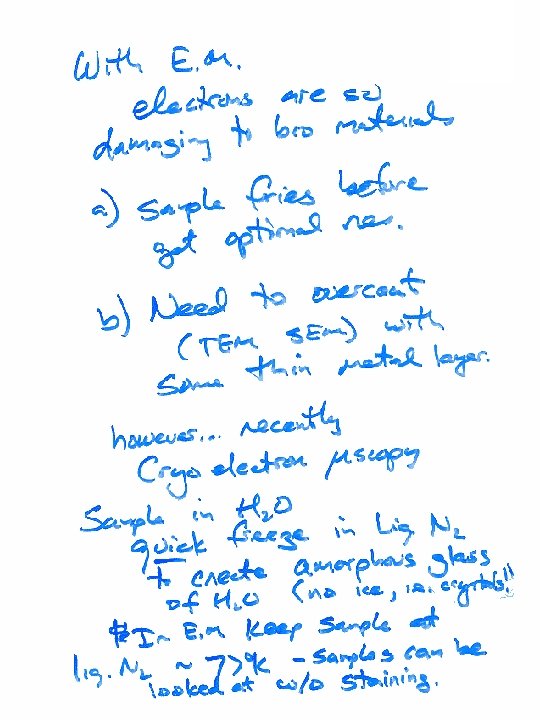 With E.M.
electrons are so
damaging to bio materials
a) Sample fries before
get optimal res.
b) Need to overcoat
(TEM SEM) with
some thin metal layer.
however... recently
Cryo electron μscopy
Sample in H2O
quick freeze in Liq N2
to create amorphous glass
of H2O (no ice, i.e. crystals!!
In E.M keep sample at
liq. N2 ~ 77°K - samples can be
looked at w/o staining.